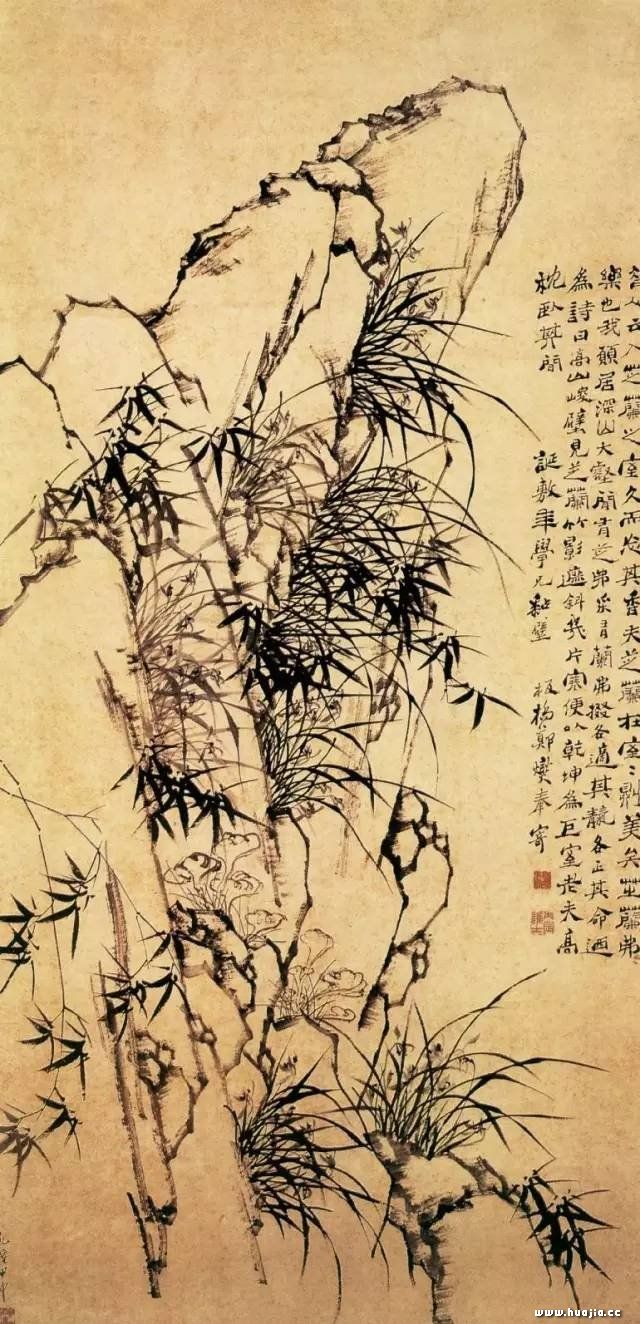 昔人云入芝蘭之室久而忘其香夫芝蘭在室〻則美矣芝蘭弗
樂也我願居深山大壑間有芝弗采有蘭弗掇各適其各正其命迺
為詩曰高山峻壁見芝蘭竹影遮斜幾片寒便以乾坤為巨室老夫高
枕臥其間
誕敷年學兄粘壁
板橋鄭燮奉寄
www.huajia.cc